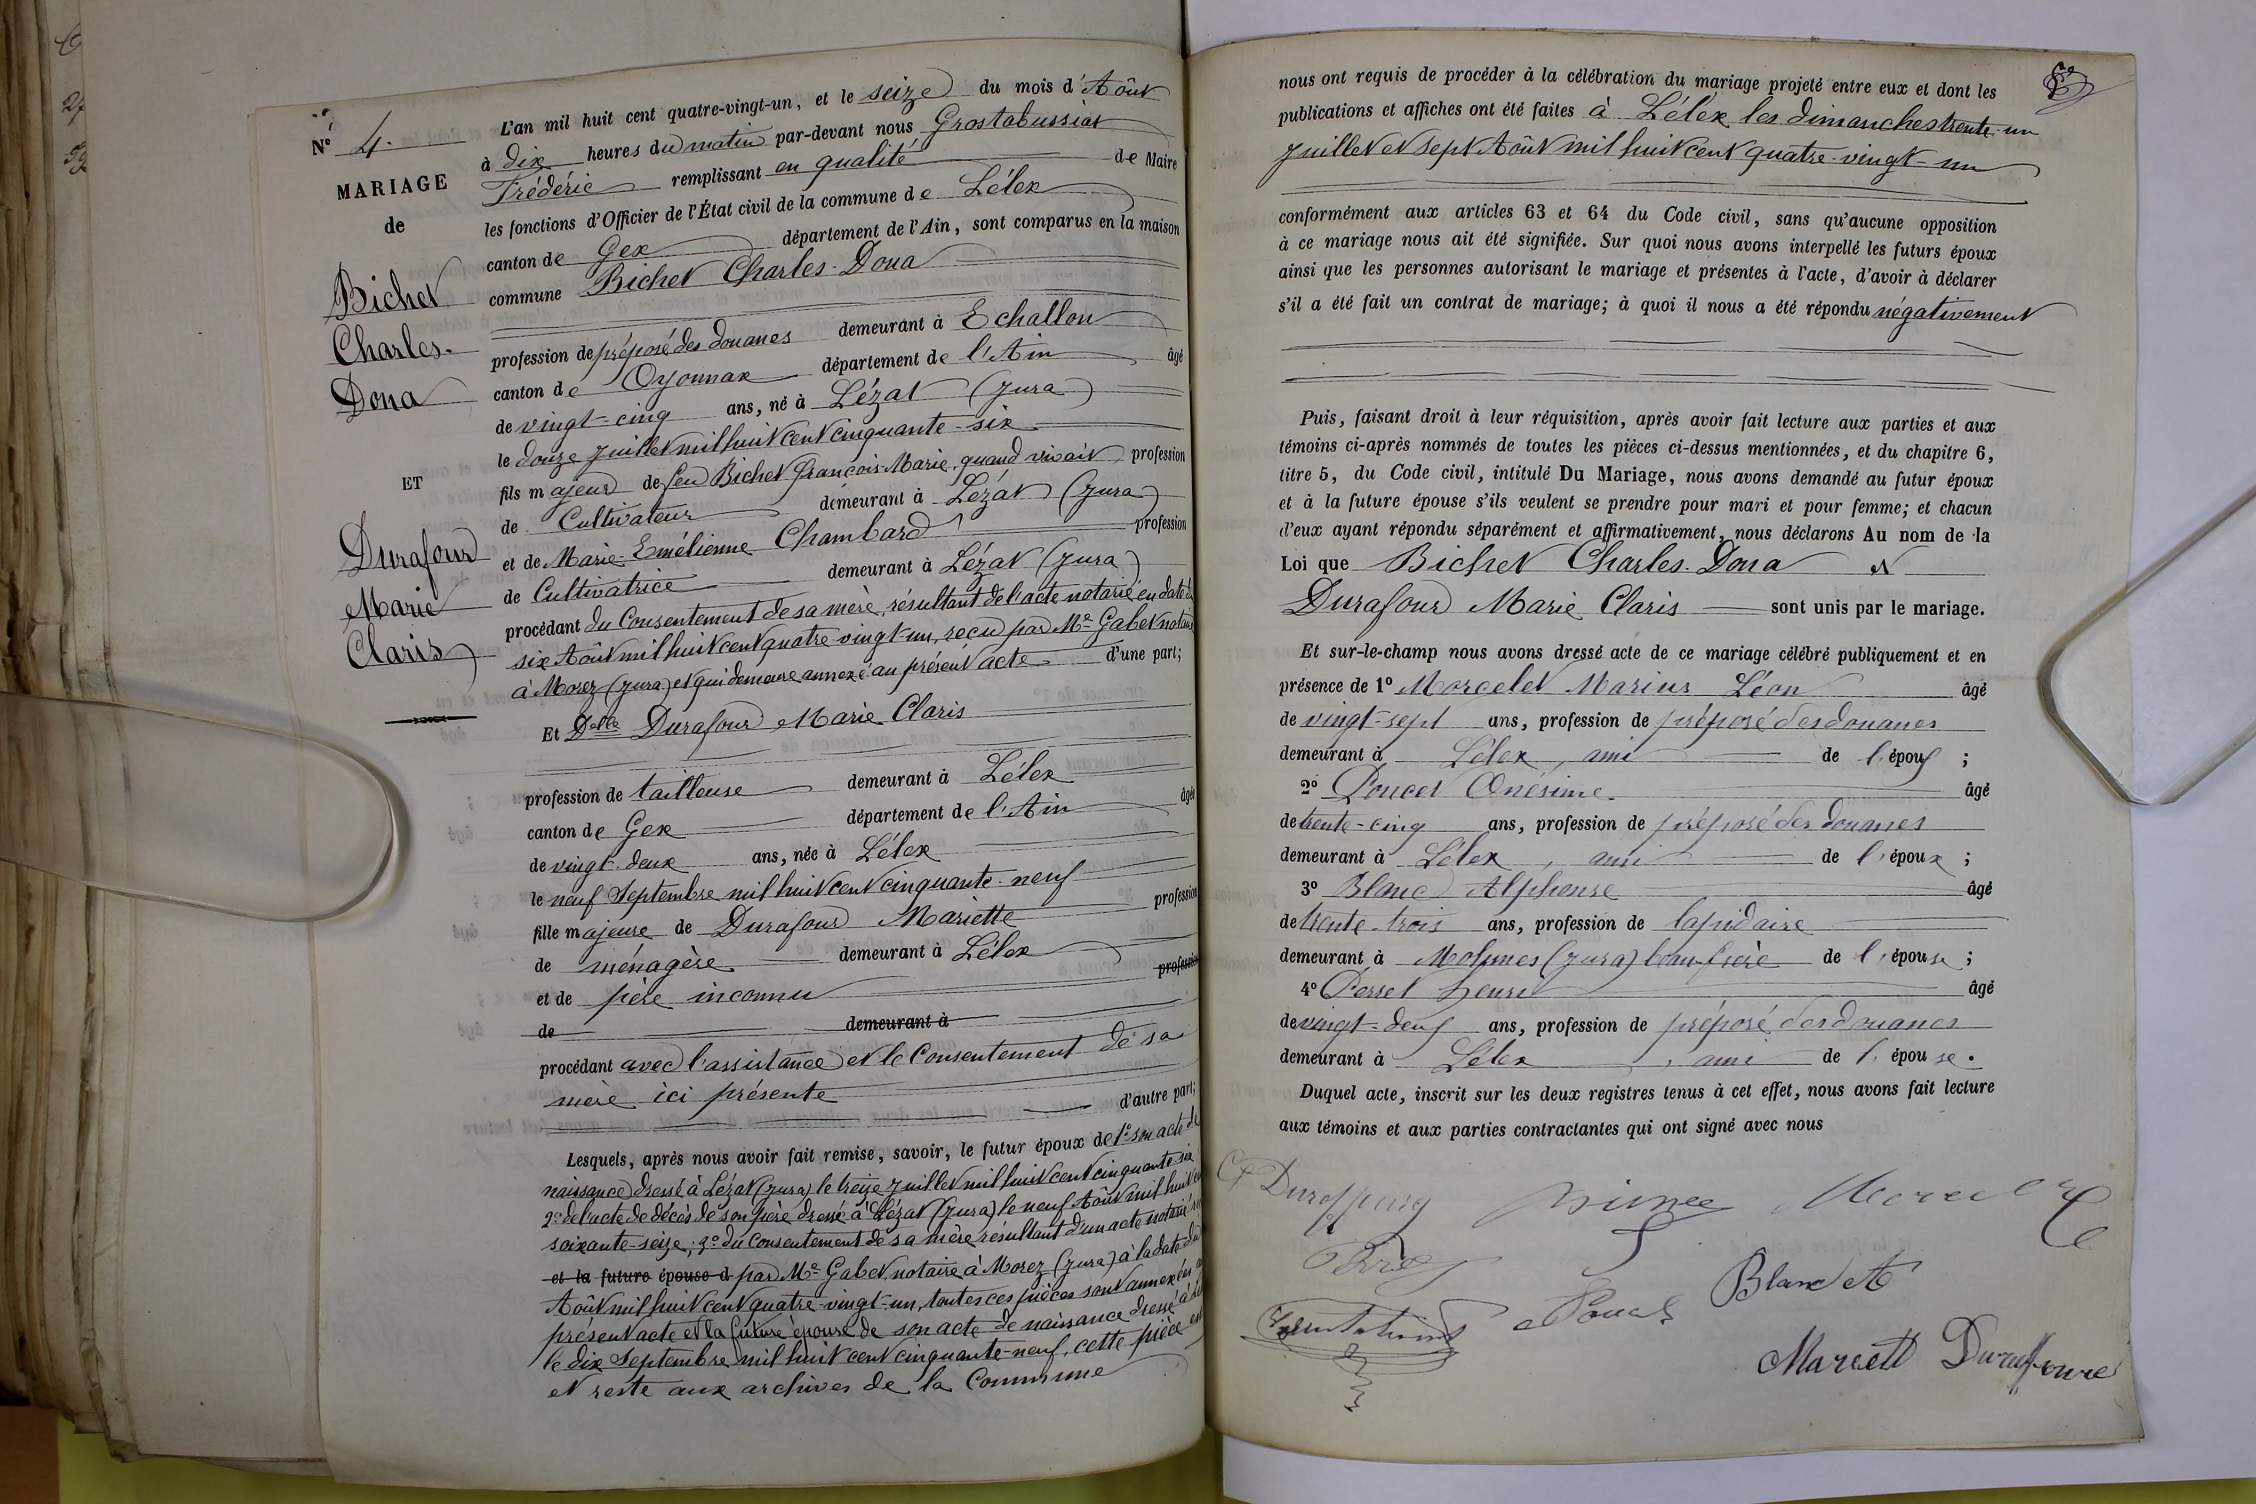 Nº 4.
MARIAGE
de
Bichet
Charles-
Dona
ET
Durafour
Marie
Claris
L'an mil huit cent quatre-vingt-un, et le seize du mois d'Août
à dix heures du matin par-devant nous Grostabussiat
Frédéric remplissant en qualité de Maire
les fonctions d'Officier de l'État civil de la commune de Lélex
canton de Gex département de l'Ain, sont comparus en la maison
commune Bichet Charles-Dona
profession de préposé des douanes demeurant à Echallon
canton de Oyonnax département de l'Ain âgé
de vingt-cinq ans, né à Lézat (Jura)
le douze Juillet mil huit cent cinquante-six
fils majeur de feu Bichet François-Marie, quand vivait profession
de Cultivateur demeurant à Lézat (Jura)
et de Marie-Emélienne Chambard profession
de Cultivatrice demeurant à Lézat (Jura)
procédant du Consentement de sa mère, résultant de l'acte notarié en date du
six Août mil huit cent quatre-vingt-un, reçu par Me Gabet notaire
à Morez (Jura) et qui demeure annexé au présent acte d'une part;
Et Delle Durafour Marie Claris
profession de tailleuse demeurant à Lélex
canton de Gex département de l'Ain âgée
de vingt-deux ans, née à Lélex
le neuf Septembre mil huit cent cinquante-neuf
fille majeure de Durafour Mariette profession
de ménagère demeurant à Lélex
et de père inconnu profession
de demeurant à
procédant avec l'assistance et le Consentement de sa
mère ici présente
d'autre part;
Lesquels, après nous avoir fait remise, savoir, le futur époux de 1º son acte de
naissance dressé à Lézat (Jura) le treize Juillet mil huit cent cinquante-six
2º de l'acte de décès de son père dressé à Lézat (Jura) le neuf Août mil huit cent
soixante-seize; 3º du Consentement de sa mère résultant d'un acte notarié
et la future épouse d par Me Gabet notaire à Morez (Jura) à la date du
Août mil huit cent quatre-vingt-un, toutes ces pièces sont annexées au
présent acte et la future épouse de son acte de naissance dressé à
le dix Septembre mil huit cent cinquante-neuf, cette pièce est
et reste aux archives de la Commune
nous ont requis de procéder à la célébration du mariage projeté entre eux et dont les
publications et affiches ont été faites à Lélex les dimanches trente-un
Juillet et sept Août mil huit cent quatre-vingt-un
conformément aux articles 63 et 64 du Code civil, sans qu'aucune opposition
à ce mariage nous ait été signifiée. Sur quoi nous avons interpellé les futurs époux
ainsi que les personnes autorisant le mariage et présentes à l'acte, d'avoir à déclarer
s'il a été fait un contrat de mariage; à quoi il nous a été répondu négativement
Puis, faisant droit à leur réquisition, après avoir fait lecture aux parties et aux
témoins ci-après nommés de toutes les pièces ci-dessus mentionnées, et du chapitre 6,
titre 5, du Code civil, intitulé Du Mariage, nous avons demandé au futur époux
et à la future épouse s'ils veulent se prendre pour mari et pour femme; et chacun
d'eux ayant répondu séparément et affirmativement, nous déclarons Au nom de la
Loi que Bichet Charles-Dona et
Durafour Marie Claris sont unis par le mariage.
Et sur-le-champ nous avons dressé acte de ce mariage célébré publiquement et en
présence de 1º Morcelet Marius Léon âgé
de vingt-sept ans, profession de préposé des douanes
demeurant à Lélex, ami de l'époux;
2º Poncet Onésime âgé
de trente-cinq ans, profession de préposé des douanes
demeurant à Lélex, ami de l'époux;
3º Blanc Alphonse âgé
de trente-trois ans, profession de lapidaire
demeurant à Molunes (Jura) beau-frère de l'épouse;
4º Perret Henri âgé
de vingt-deux ans, profession de préposé des douanes
demeurant à Lélex, ami de l'épouse.
Duquel acte, inscrit sur les deux registres tenus à cet effet, nous avons fait lecture
aux témoins et aux parties contractantes qui ont signé avec nous
Blanc A
Mariett Duraffour